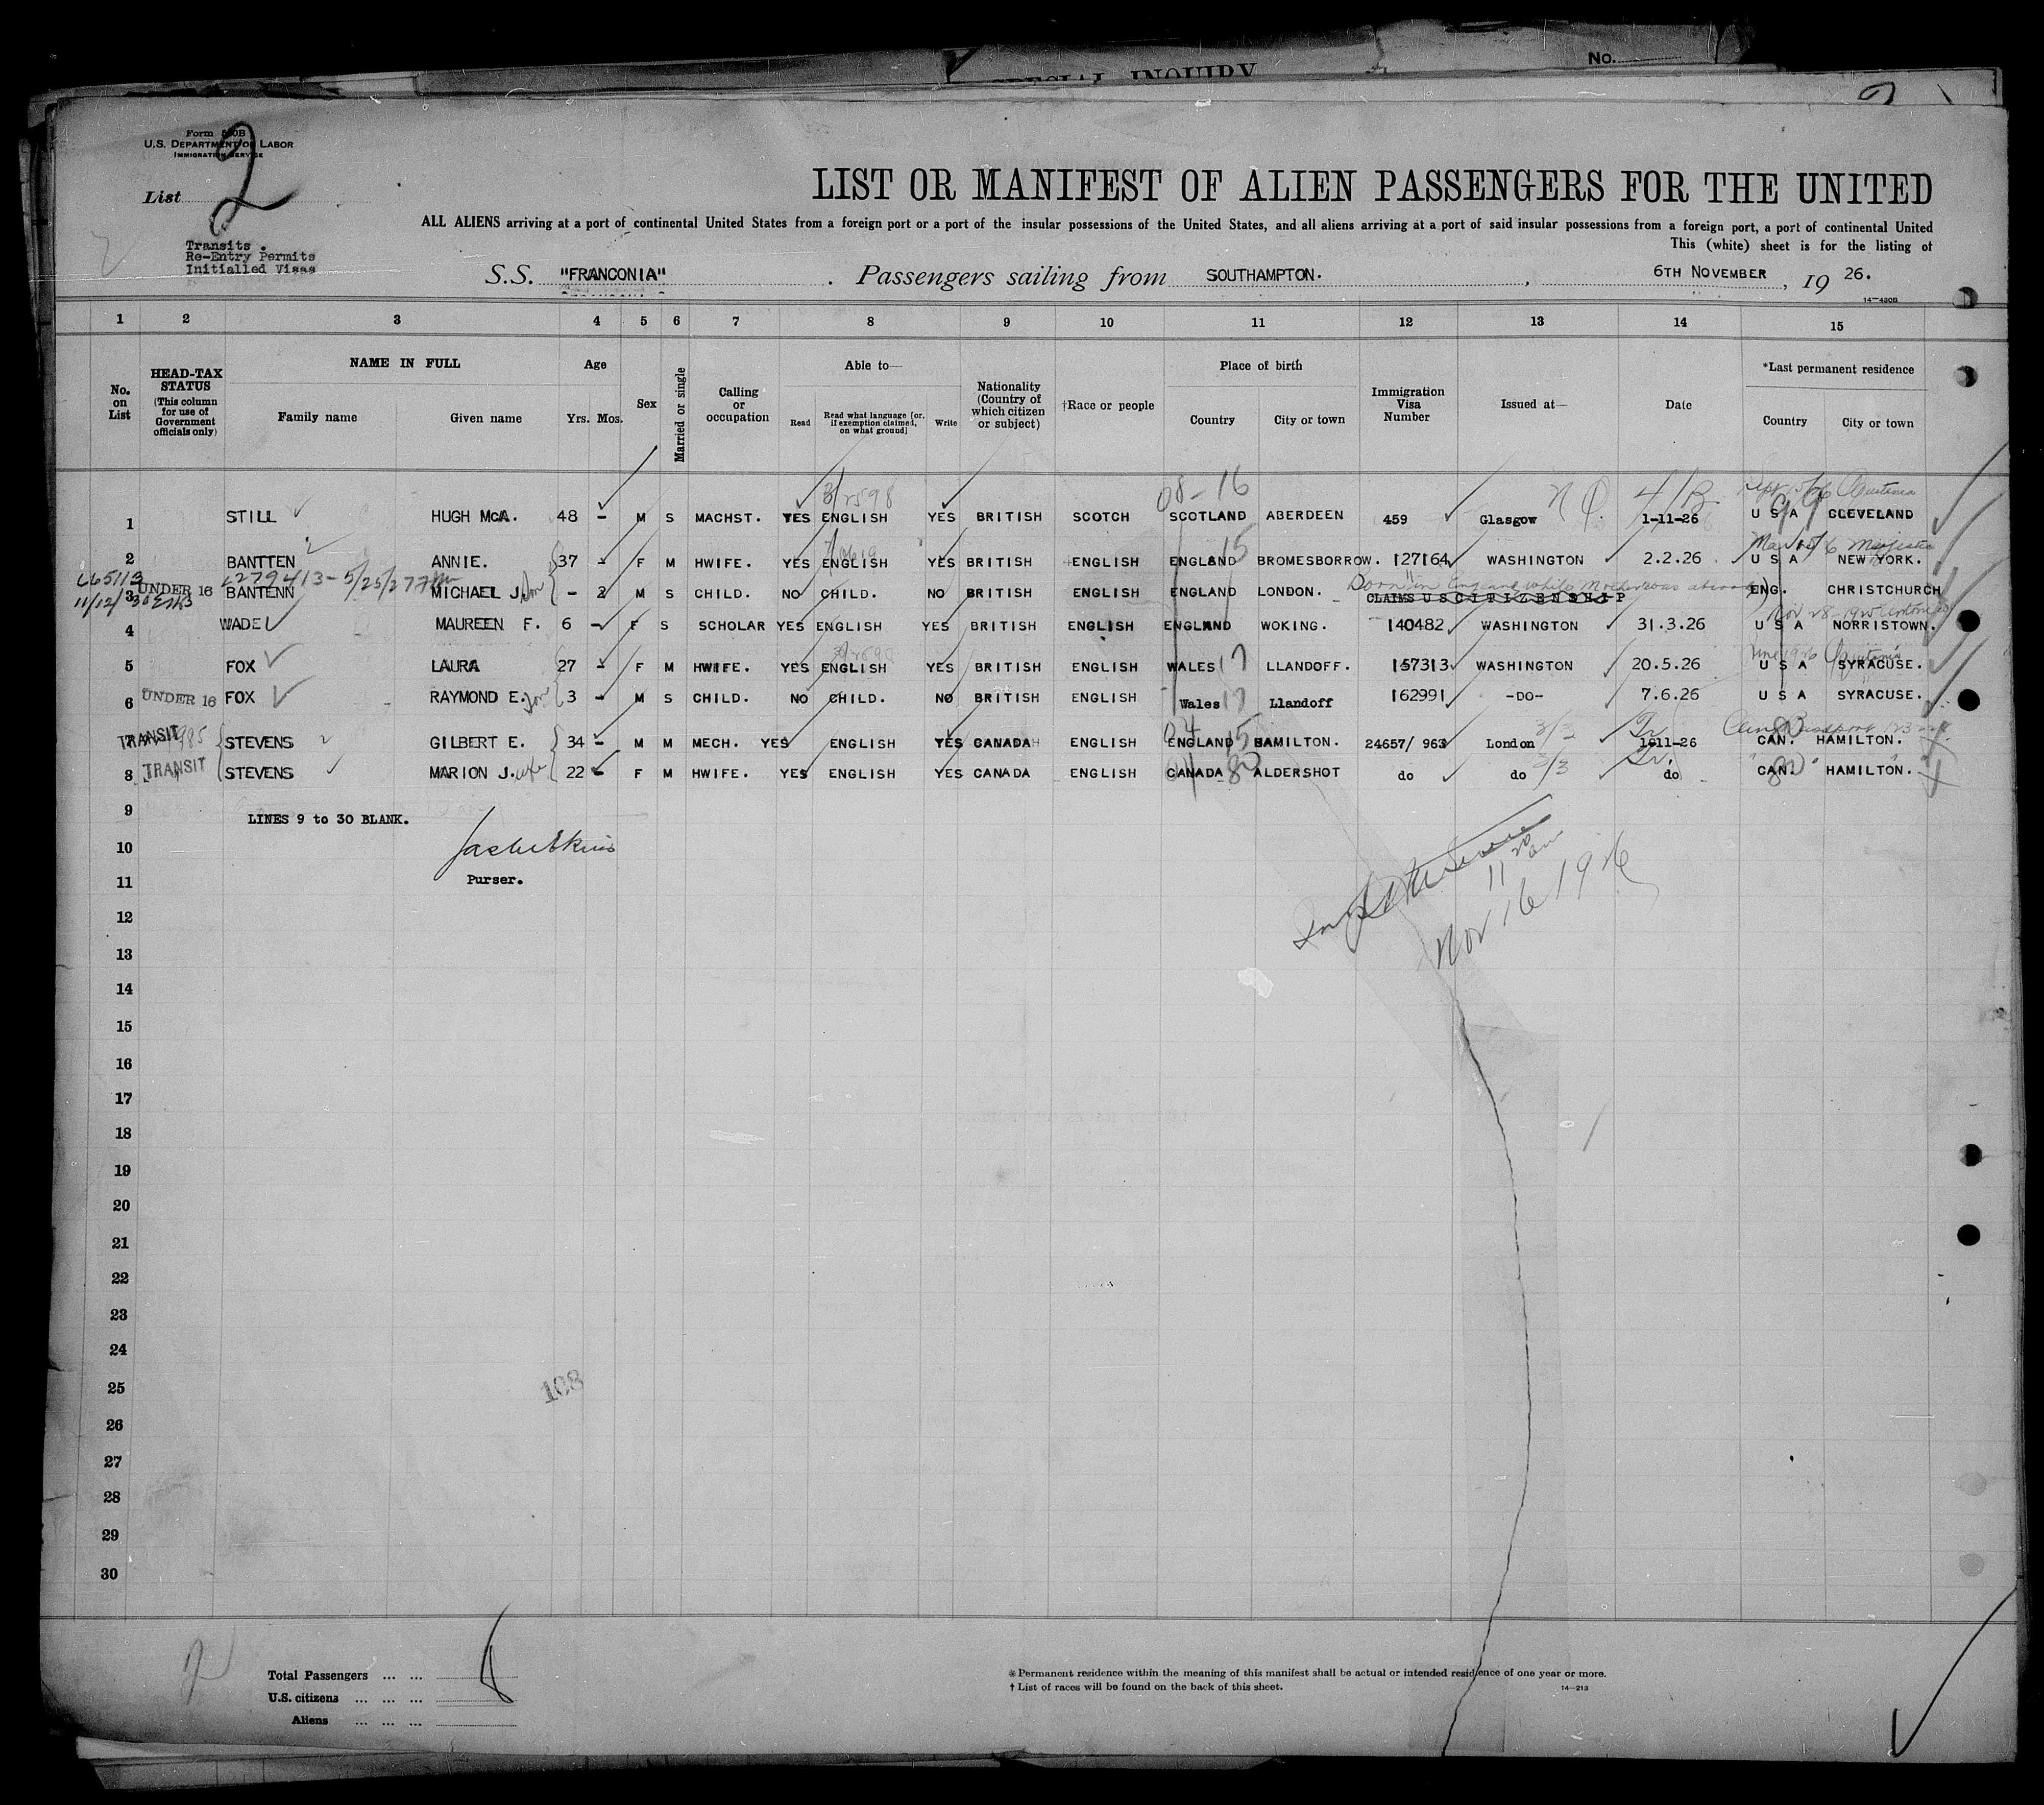 SPECIAL INQUIRY
No.
Form 500B
U.S. DEPARTMENT OF LABOR
IMMIGRATION SERVICE
List 2
LIST OR MANIFEST OF ALIEN PASSENGERS FOR THE UNITED
ALL ALIENS arriving at a port of continental United States from a foreign port or a port of the insular possessions of the United States, and all aliens arriving at a port of said insular possessions from a foreign port, a port of continental United
This (white) sheet is for the listing of
Transits.
Re-Entry Permits
Initialled Visas
S.S. "FRANCONIA" Passengers sailing from SOUTHAMPTON. , 6TH NOVEMBER , 19 26.
14-430B
1 2 3 4 5 6 7 8 9 10 11 12 13 14 15
No. on List
HEAD-TAX STATUS (This column for use of Government officials only)
NAME IN FULL Family name Given name
Age Yrs. Mos.
Sex
Married or single
Calling or occupation
Able to— Read Read what language [or, if exemption claimed, on what ground] Write
Nationality (Country of which citizen or subject)
†Race or people
Place of birth Country City or town
Immigration Visa Number
Issued at—
Date
*Last permanent residence Country City or town
3/2598 08-16 4/B
1 STILL HUGH McA. 48 - M S MACHST. YES ENGLISH YES BRITISH SCOTCH SCOTLAND ABERDEEN 459 Glasgow 1-11-26 U S A CLEVELAND
2 BANTTEN ANNIE. 37 - F M HWIFE. YES ENGLISH YES BRITISH ENGLISH ENGLAND 15 BROMESBORROW. 127164 WASHINGTON 2.2.26 U S A NEW YORK.
2279413-5/25/37
Born in England while Mother was abroad
3 UNDER 16 BANTENN MICHAEL J. Son - 2 M S CHILD. NO CHILD. NO BRITISH ENGLISH ENGLAND LONDON. CLAIMS U S CITIZENSHIP ENG. CHRISTCHURCH
11/12/30
4 WADE MAUREEN F. 6 - F S SCHOLAR YES ENGLISH YES BRITISH ENGLISH ENGLAND WOKING. 140482 WASHINGTON 31.3.26 U S A NORRISTOWN.
5 FOX LAURA 27 - F M HWIFE. YES ENGLISH YES BRITISH ENGLISH WALES 17 LLANDOFF. 157313 WASHINGTON 20.5.26 U S A SYRACUSE.
6 UNDER 16 FOX RAYMOND E. Son 3 - M S CHILD. NO CHILD. NO BRITISH ENGLISH Wales 17 Llandoff 162991 -DO- 7.6.26 U S A SYRACUSE.
TRANSIT STEVENS GILBERT E. 34 - M M MECH. YES ENGLISH YES CANADA ENGLISH ENGLAND 15 HAMILTON. 24657/ 963 London 3/3 Tr. 1-11-26 CAN. HAMILTON.
8 TRANSIT STEVENS MARION J. wife 22 - F M HWIFE. YES ENGLISH YES CANADA ENGLISH CANADA 80 ALDERSHOT do do 3/3 Tr. do CAN. 80 HAMILTON.
9
LINES 9 to 30 BLANK.
10
Purser.
11
11 20 am
Nov 16 1926
12
13
14
15
16
17
18
19
20
21
22
23
24
25
108
26
27
28
29
30
Total Passengers ... ... 8
U.S. citizens ... ... ...
Aliens ... ... ...
* Permanent residence within the meaning of this manifest shall be actual or intended residence of one year or more.
† List of races will be found on the back of this sheet.
14-213